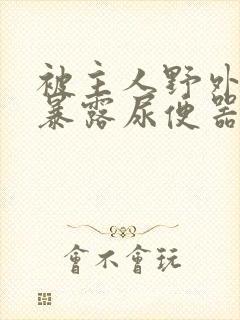 被主人野外
暴露尿便器
會不會玩